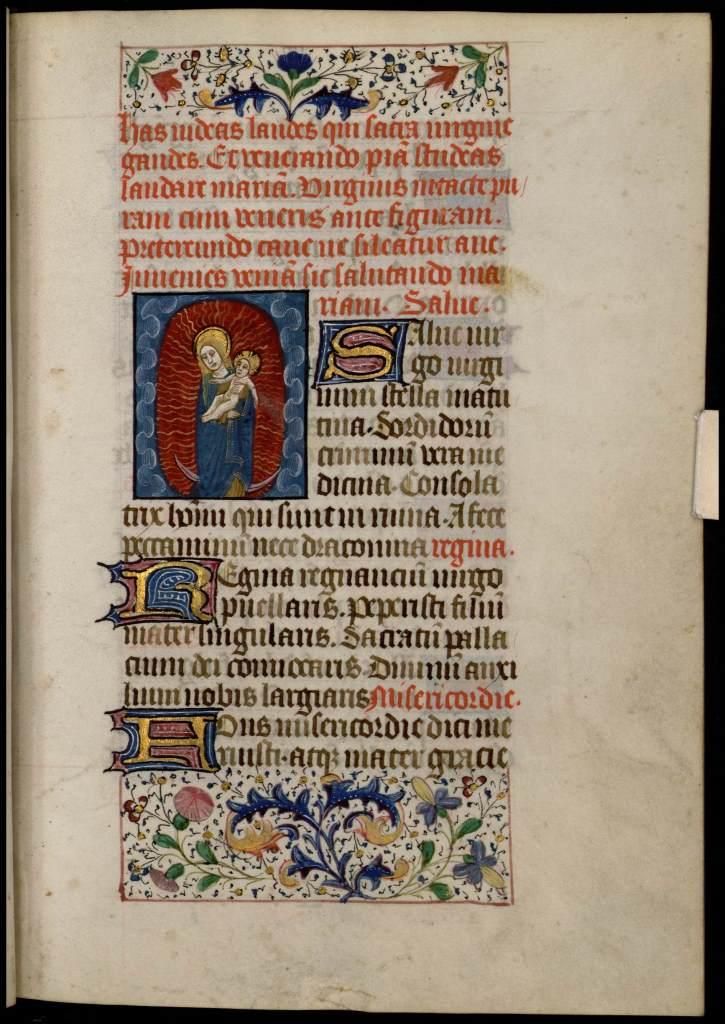 has videas laudes qui sacra virgine
gaudes. Et venerando piā studeas
laudare mariā. Virginis intacte pu/
ram cum veneris ante figuram.
Pretereundo cave ne sileatur ave.
Invenies veniā sic salutando ma
riam. Salve.
Salve vir
go virgi
num stella matu
tina. Sordidorū
criminū vera me
dicina. Consola
trix hoīm qui sunt in ruina. A fece
peccaminū nece draconina regina.
Regina regnanciū virgo
puellaris. Peperisti filiū
mater singularis. Sacratū palla
cium dei
Divinū auxi
lium nobis largiaris Misericordie.
Fons misericordie dici me
ruisti. atqꝫ mater gracie